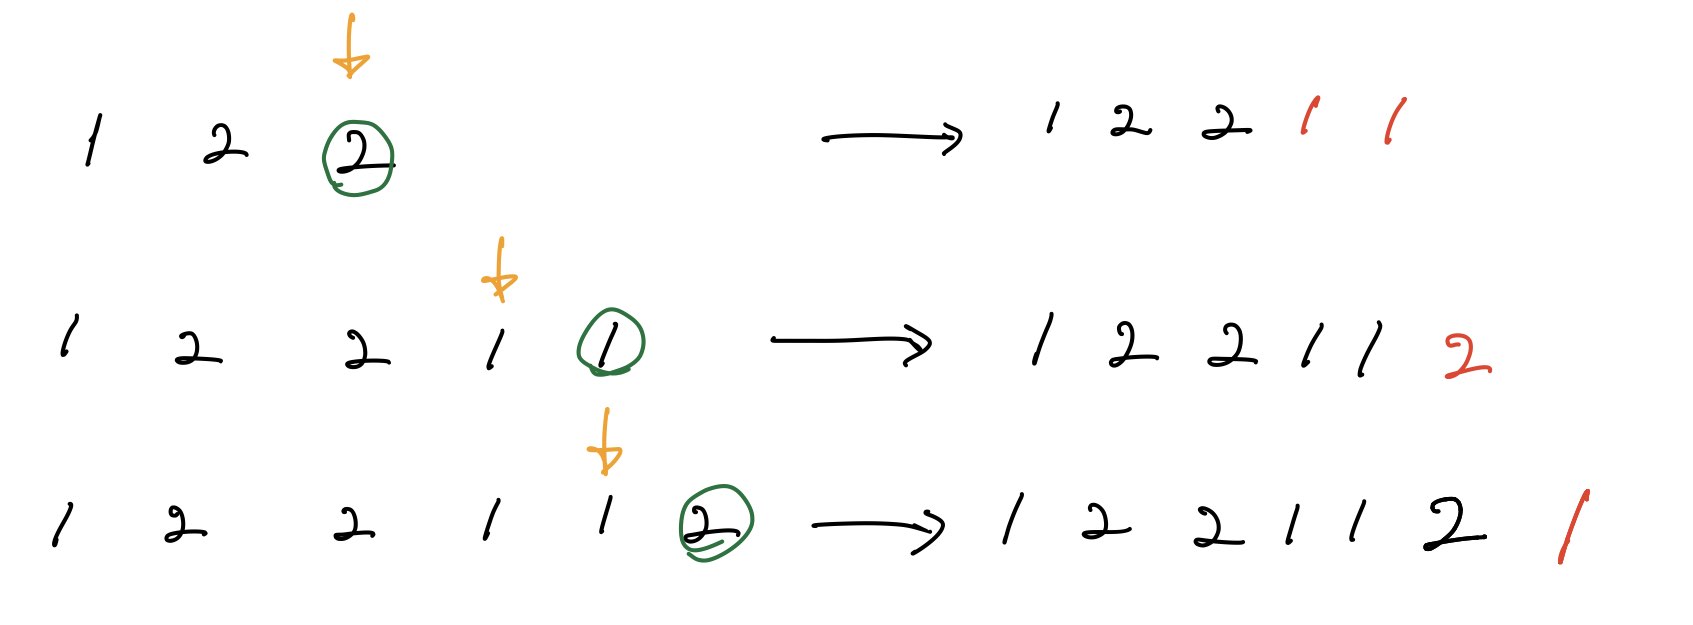 1 2 2 → 1 2 2 1 1
1 2 2 1 1 → 1 2 2 1 1 2
1 2 2 1 1 2 → 1 2 2 1 1 2 1